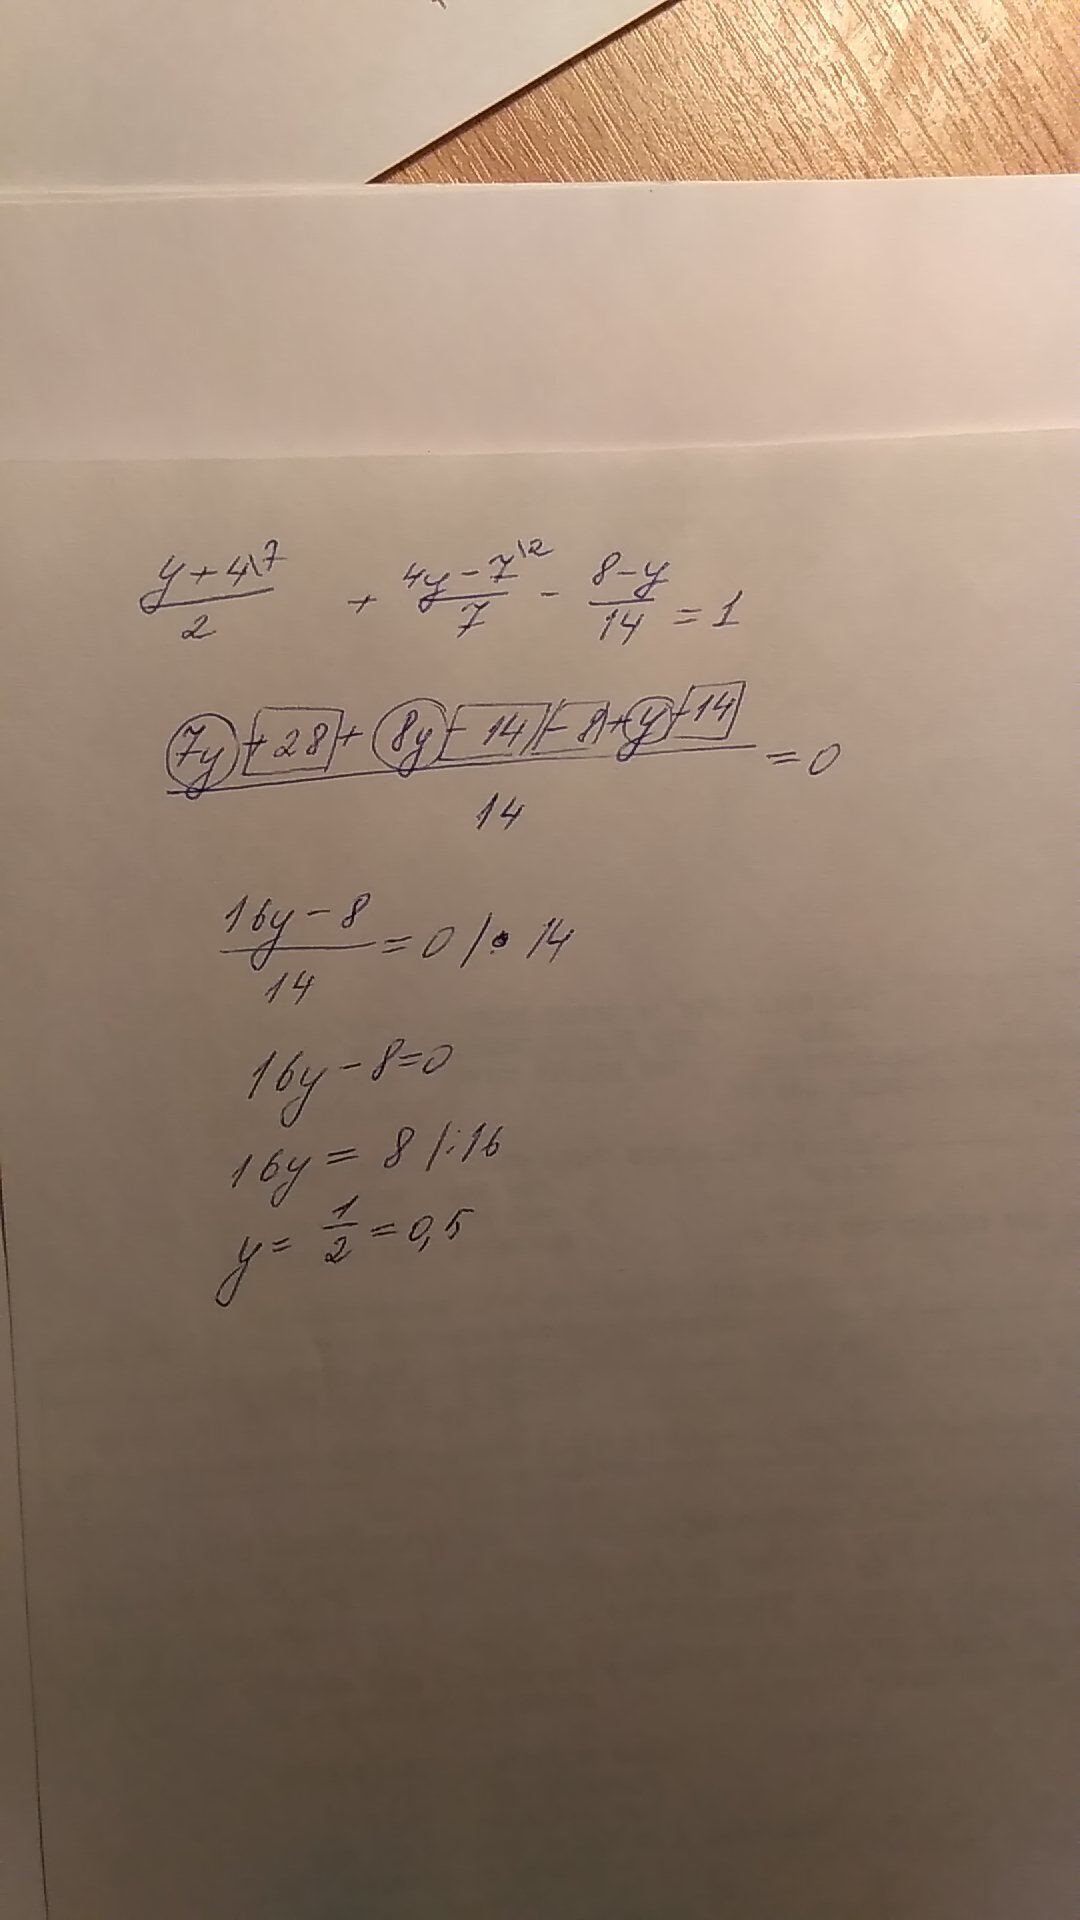 (y+4\7)/2 + (4y-7\2)/7 - (8-y)/14 = 1
(7y+28+8y-14-8+y-14)/14 = 0
(16y-8)/14 = 0 /· 14
16y-8=0
16y = 8 /:16
y= 1/2 = 0,5